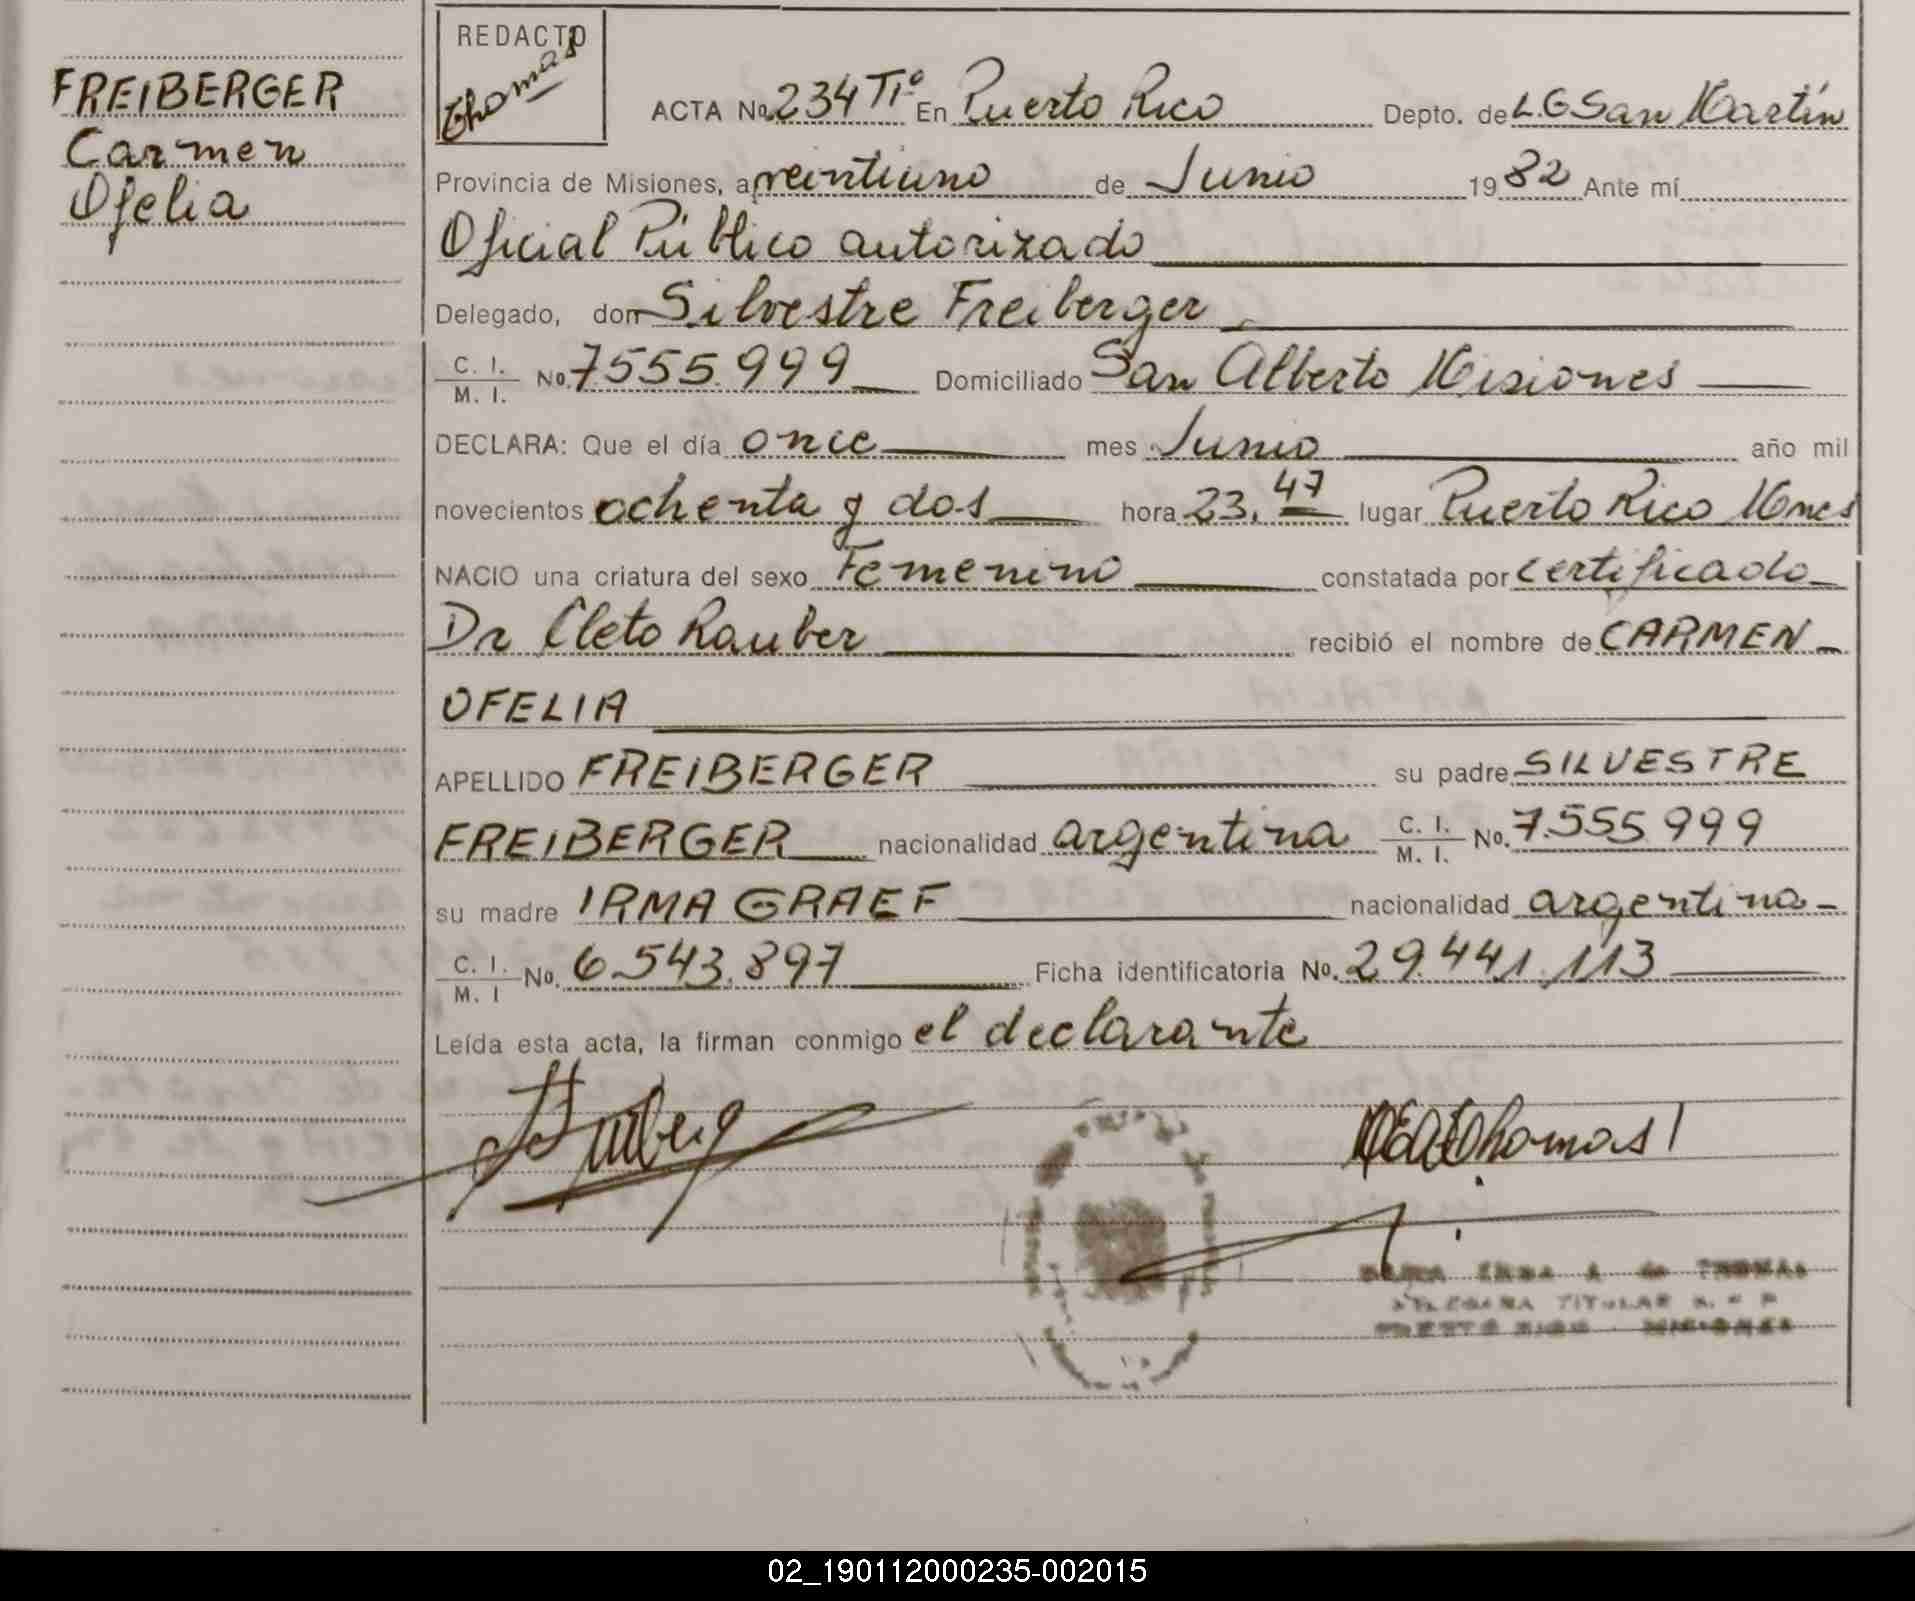 FREIBERGER
Carmen
Ofelia
REDACTO
Thomas
ACTA No. 234 Tº En Puerto Rico Depto. de L.G San Martín
Provincia de Misiones, a veintiuno de Junio 1982 Ante mí
Oficial Público autorizado
Delegado, don Silvestre Freiberger
C. I. M. I. No. 7.555.999 Domiciliado San Alberto Misiones
DECLARA: Que el día once mes Junio año mil
novecientos ochenta y dos hora 23.47 lugar Puerto Rico Mnes
NACIO una criatura del sexo Femenino constatada por certificado
Dr Cleto Rauber recibió el nombre de CARMEN
OFELIA
APELLIDO FREIBERGER su padre SILVESTRE
FREIBERGER nacionalidad argentina C. I. M. I. No. 7.555.999
su madre IRMA GRAEF nacionalidad argentina
C. I. M. I No. 6.543.897 Ficha identificatoria No. 29.441.113
Leída esta acta, la firman conmigo el declarante
Thomas
de THOMAS
TITULAR
PUERTO RICO - MISIONES
02_190112000235-002015